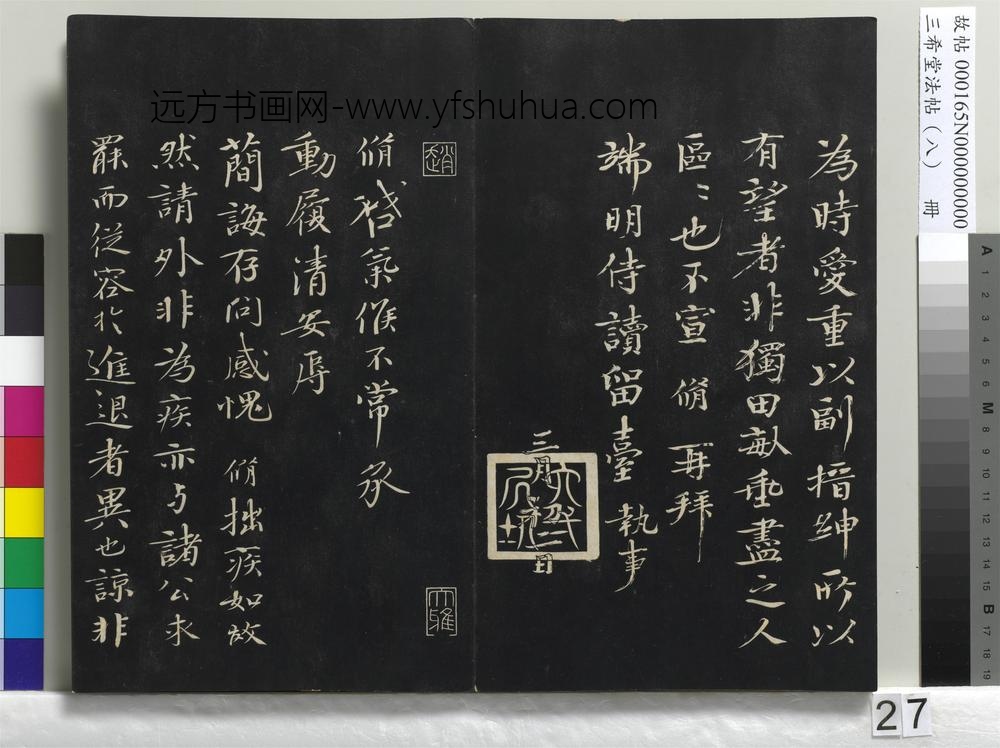 远方书画网-www.yfshuhua.com
為時愛重以副搢紳所以
有望者非獨田畝垂盡之人
區〻也不宣 脩 再拜
端明侍讀留臺 執事
三月
日
趙
脩啓氣候不常 承
動履清安辱
簡誨存問感愧 脩拙疾如故
然請外非為疾亦与諸公求
罷而從容於進退者異也諒非
大雅
故帖 000165N000000000
三希堂法帖(八) 冊
A 1 2 3 4 5 6 M 8 9 10 11 12 13 14 15 B 17 18 19
27